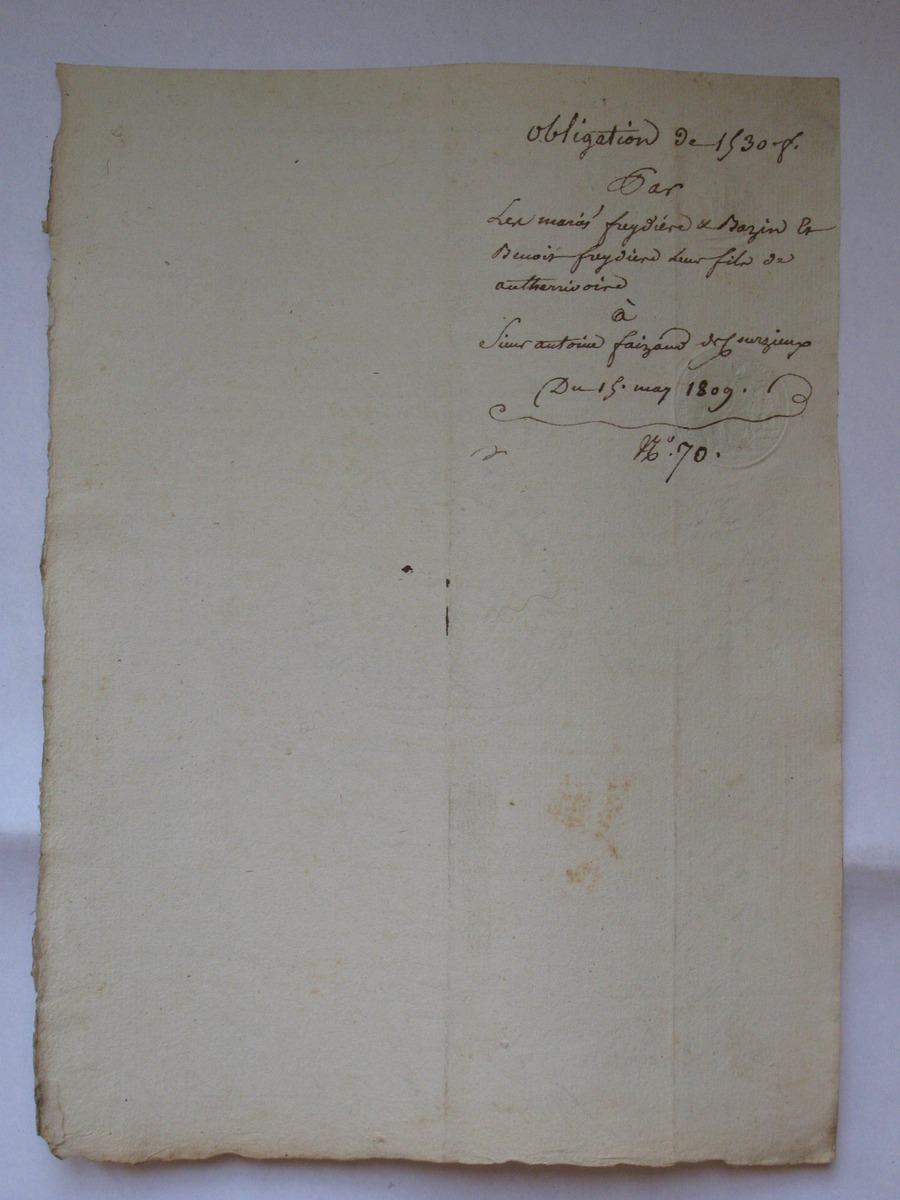 obligation de 1530 f.
Par
Les mariés freydiére & Bazin Et
Benoit freydiere Leur fils de
autherrivoire
à
Sieur antoine faizand de surzieux
Du 15. may 1809.
N.º 70.